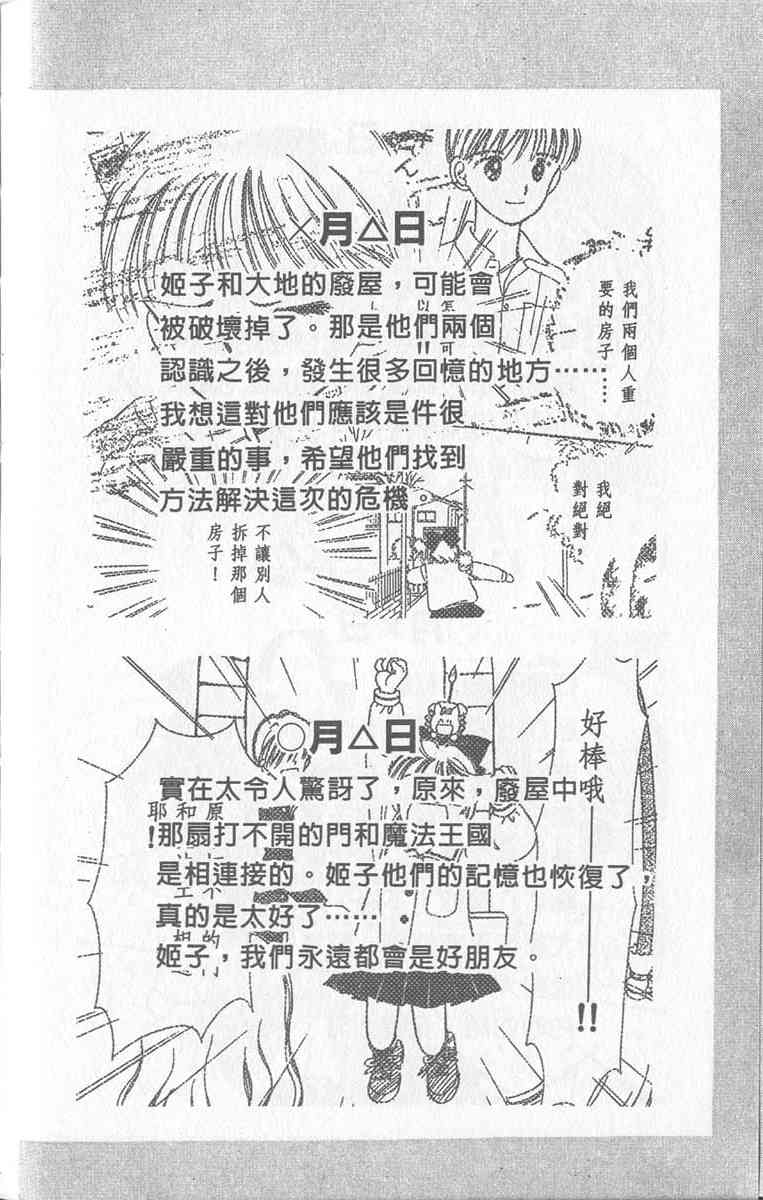 ×月△日
姬子和大地的廢屋，可能會
被破壞掉了。那是他們兩個
認識之後，發生很多回憶的地方……
我想這對他們應該是件很
嚴重的事，希望他們找到
方法解決這次的危機
我們兩個人重
要的房子……
我絕
對絕對，
不讓別人
拆掉那個
房子！
○月△日
實在太令人驚訝了，原來，廢屋中
那扇打不開的門和魔法王國
是相連接的。姬子他們的記憶也恢復了，
真的是太好了……
姬子，我們永遠都會是好朋友。
好棒哦——!!